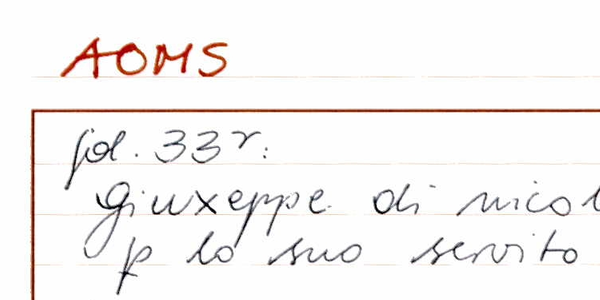 AOMS
fol. 33r:
Giuxeppe di nicol
p lo suo servito